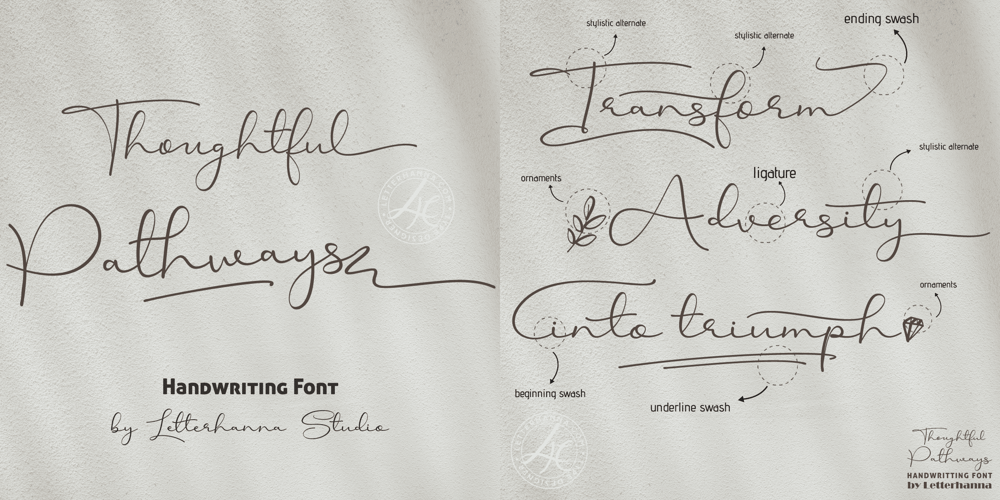 Thoughtful
Pathways
Handwriting Font
by Letterhanna Studio
stylistic alternate
stylistic alternate
ending swash
Transform
stylistic alternate
ornaments
ligature
Adversity
ornaments
into triumph
beginning swash
underline swash
Thoughtful
Pathways
HANDWRITTING FONT
by Letterhanna